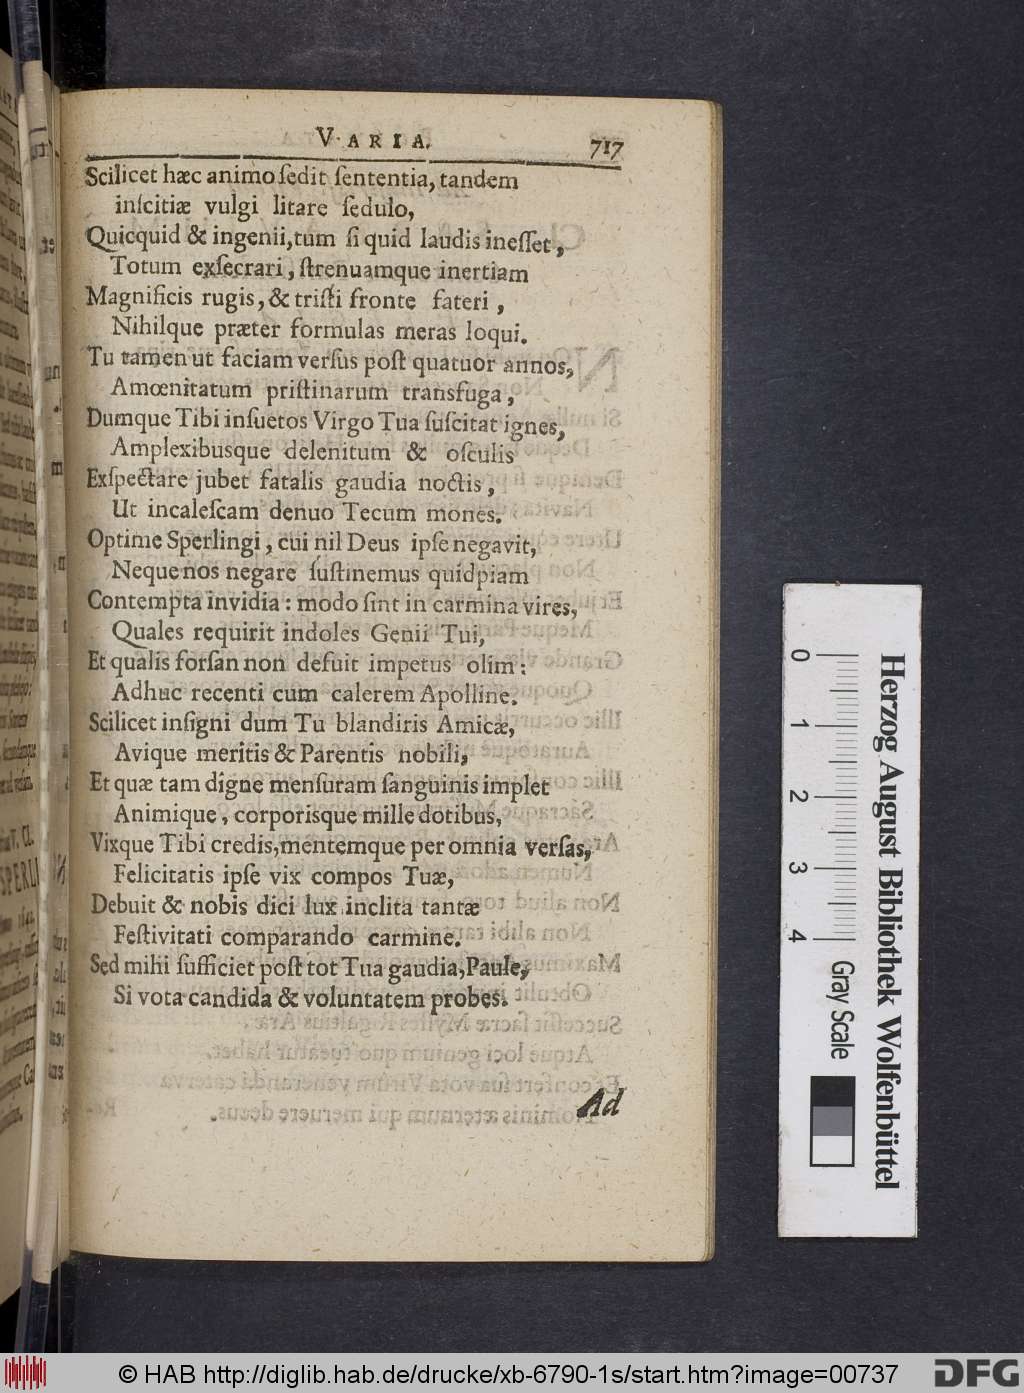 VARIA. 717
Scilicet hæc animo ſedit ſententia, tandem
inſcitiæ vulgi litare ſedulo,
Quicquid & ingenii, tum ſi quid laudis ineſſet,
Totum exſecrari, ſtrenuamque inertiam
Magnificis rugis, & triſti fronte fateri,
Nihilque præter formulas meras loqui.
Tu tamen ut faciam verſus poſt quatuor annos,
Amœnitatum priſtinarum transfuga,
Dumque Tibi inſuetos Virgo Tua ſuſcitat ignes,
Amplexibusque delenitum & oſculis
Exſpectare jubet fatalis gaudia noctis,
Ut incaleſcam denuo Tecum mones.
Optime Sperlingi, cui nil Deus ipſe negavit,
Neque nos negare ſuſtinemus quidpiam
Contempta invidia: modo ſint in carmina vires,
Quales requirit indoles Genii Tui,
Et qualis forſan non defuit impetus olim:
Adhuc recenti cum calerem Apolline.
Scilicet inſigni dum Tu blandiris Amicæ,
Avique meritis & Parentis nobili,
Et quæ tam digne menſuram ſanguinis implet
Animique, corporisque mille dotibus,
Vixque Tibi credis, mentemque per omnia verſas,
Felicitatis ipſe vix compos Tuæ,
Debuit & nobis dici lux inclita tantæ
Feſtivitati comparando carmine.
Sed mihi ſufficiet poſt tot Tua gaudia, Paule,
Si vota candida & voluntatem probes.
Ad
0 1 2 3 4
Herzog August Bibliothek Wolfenbüttel
Gray Scale
© HAB http://diglib.hab.de/drucke/xb-6790-1s/start.htm?image=00737
DFG